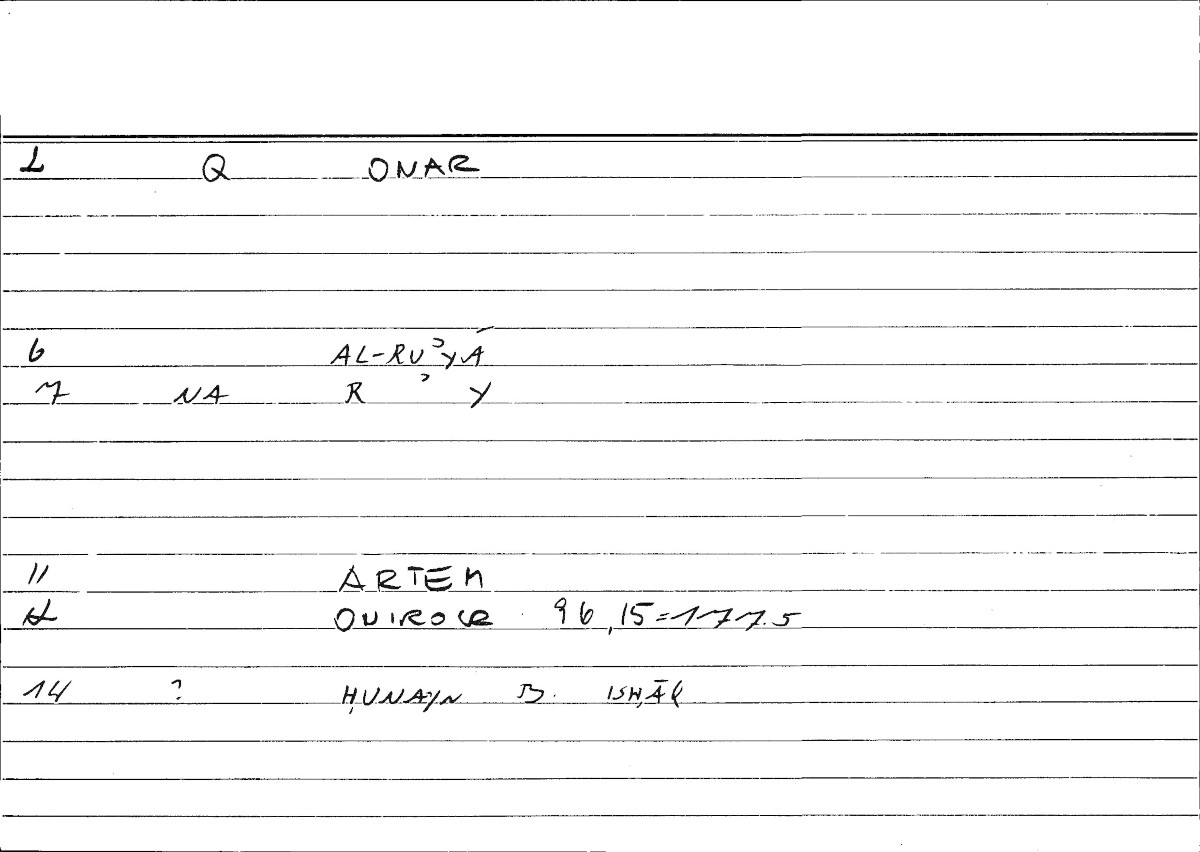 1 Q ONAR
6 AL-RUʾYĀ
7 NA R ʾ Y
11 ARTEM
ONIROCR 96,15=177.5
14 ? ḤUNAYN B. ISḤĀQ